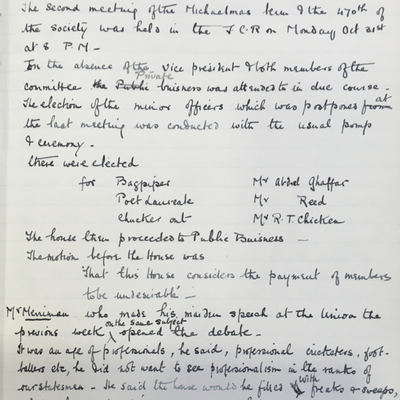 The second meeting of the Michaelmas term & the 470th of
the society was held in the J.C.R on Monday Oct 31st
at 8 P.M -
In the absence of the vice president & both members of the
committee the Public Private buisness was attended to in due course.
The election of the minor officers which was postponed from at
the last meeting was conducted with the usual pomp
& ceremony.
There were elected
for Bagpiper Mr Abdel Ghaffar
Poet Laureate Mr Reed
Chucker out Mr R.T. Chicken
The house then proceeded to Public Buisness -
The motion before the House was
That this House considers the payment of members
to be undesirable -
Mr Merriman who made his maiden speech at the Union the
previous week on the same subject opened the debate -
It was an age of professionals, he said, professional cricketers, foot-
ballers etc, he did not want to see professionalism in the ranks of
our statesmen - He said the house would be filled with freaks & sweeps,